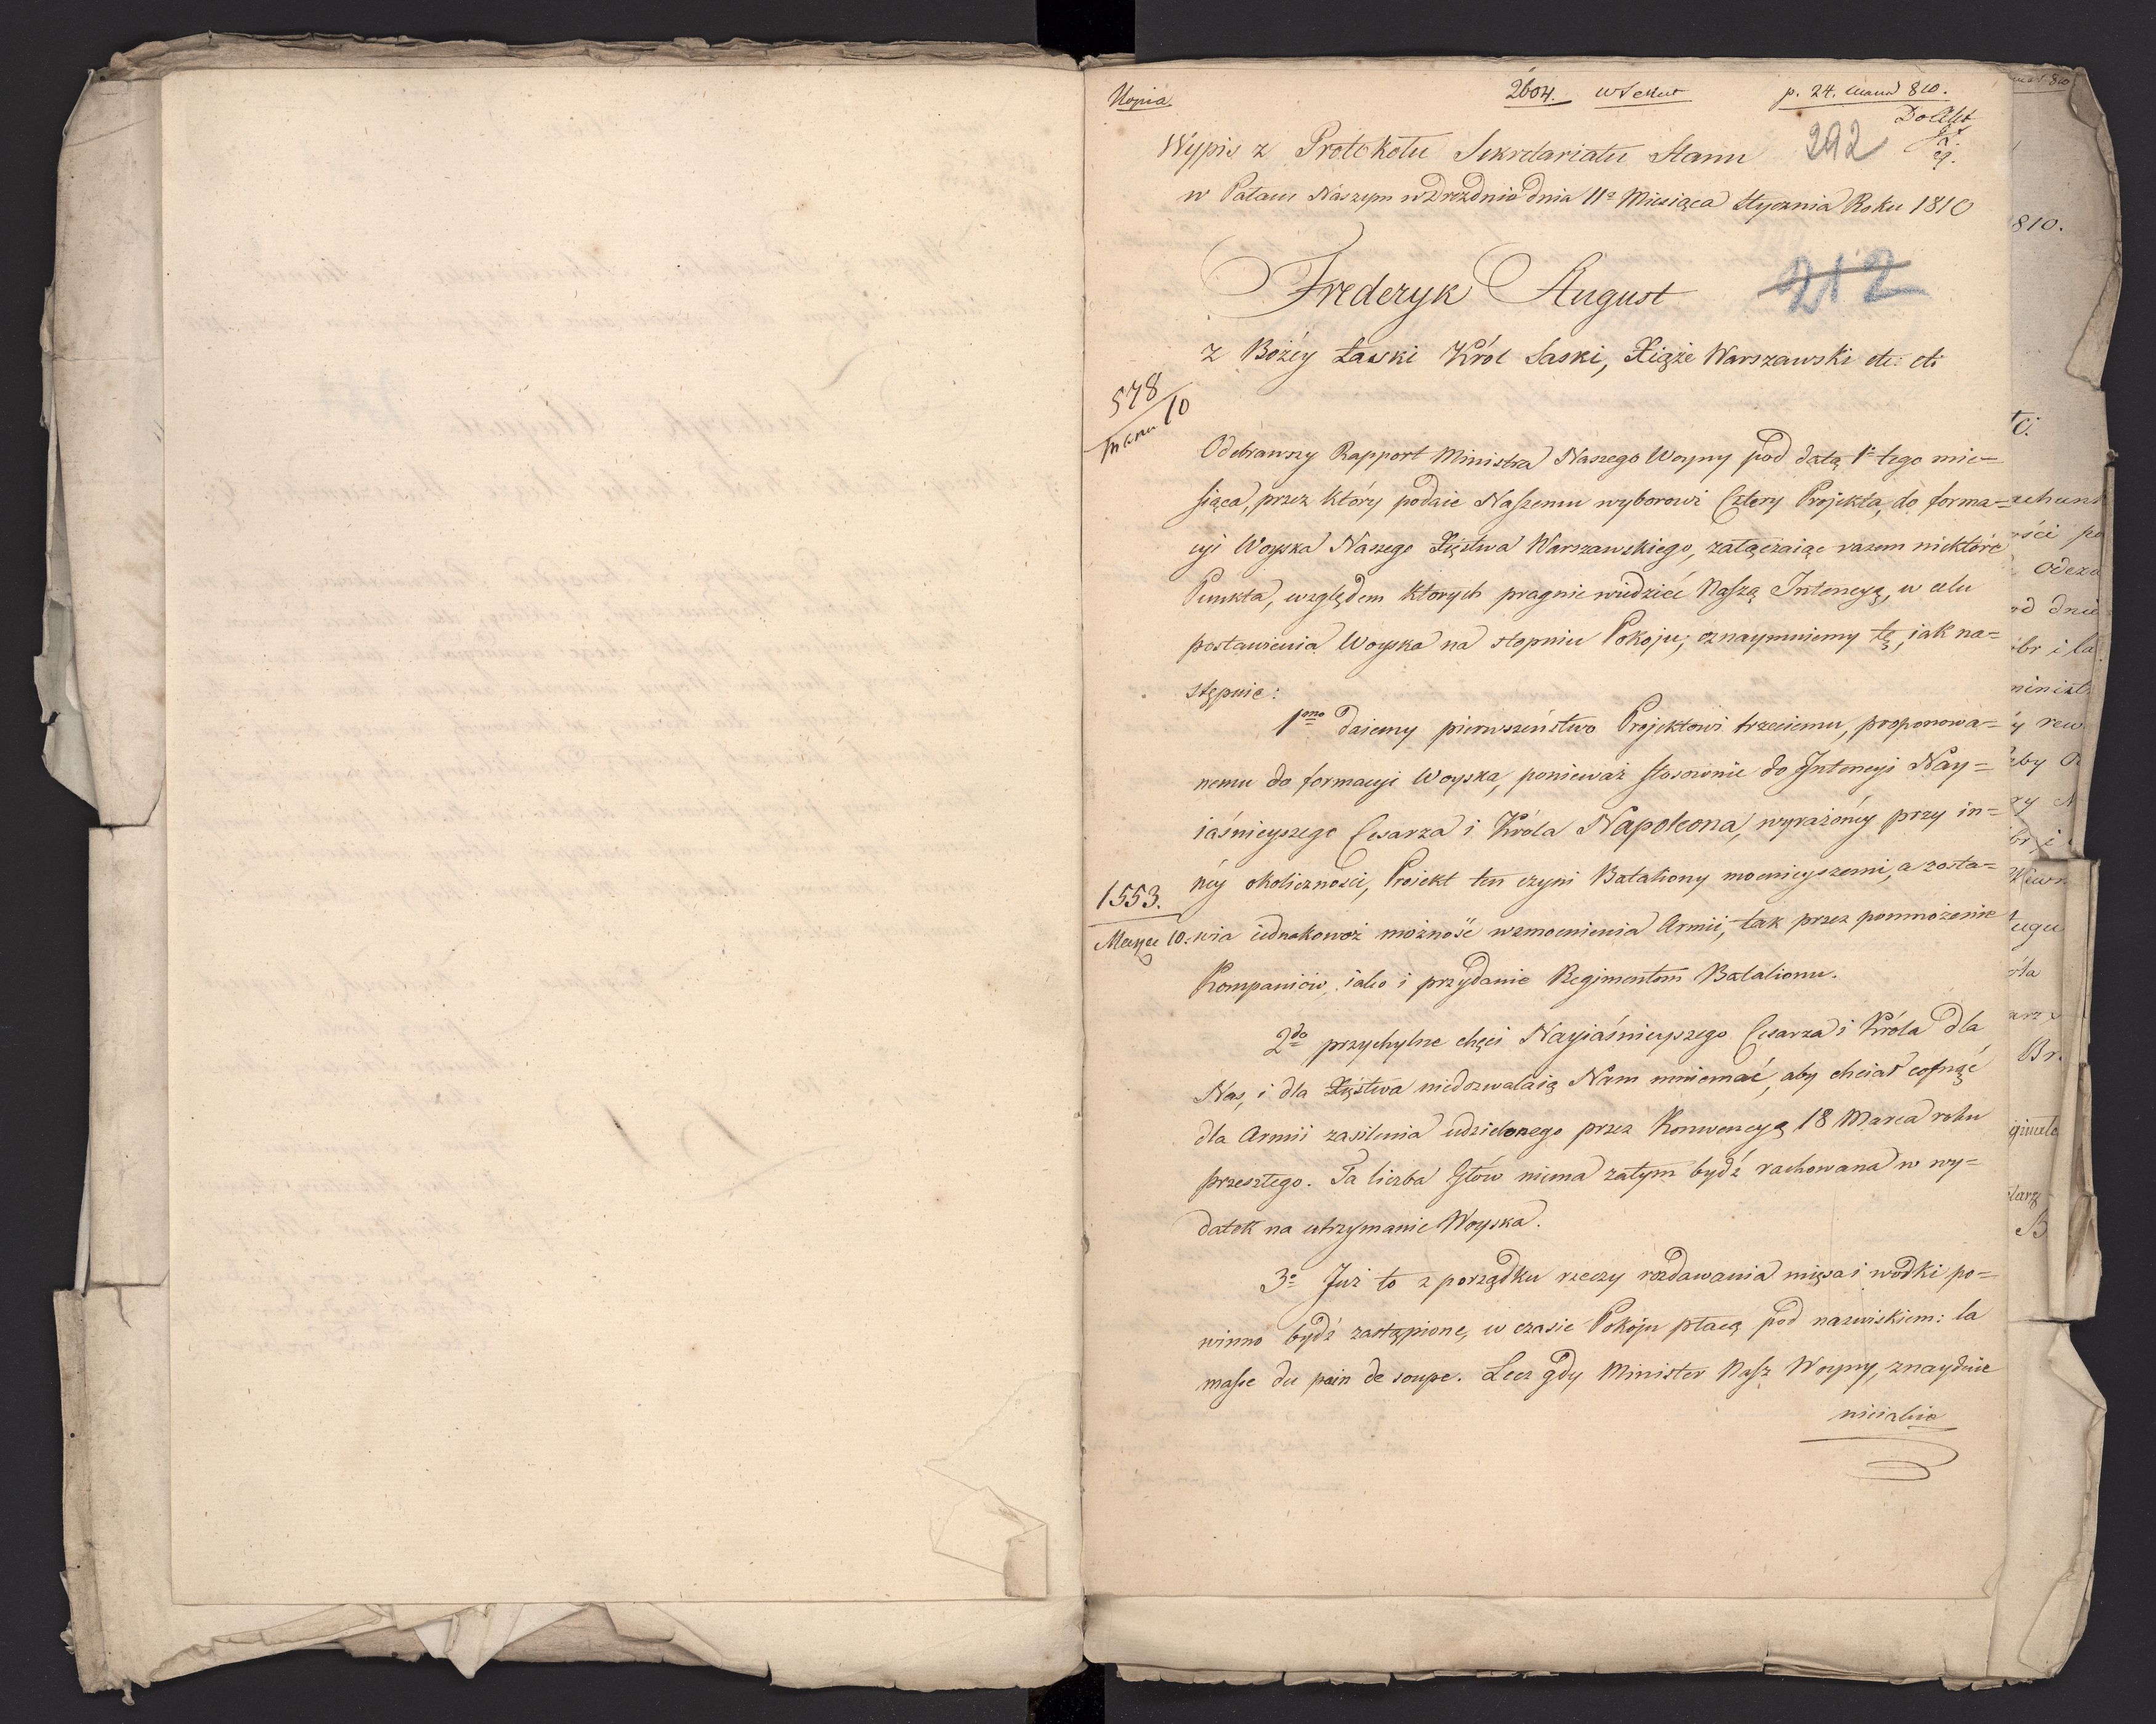 Kopia
2604.
p. 24. Marca 810.
Do Akt
292
Wypis z Protokołu Sekretariatu Stanu
w Pałacu Naszym w Dreznie dnia 11º Miesiąca Stycznia Roku 1810
212
Fryderyk August
z Bożey Łaski Król Saski, Xiąże Warszawski etc: etc
578
Marca 10
Odebrawszy Rapport Ministra Naszego Woyny pod datą 1º tego mie=
siąca, przez który podaie Naszemu wyborowi Cztery Projekta, do forma=
cyi Woyska Naszego Xięstwa Warszawskiego, załączaiąc razem niektóre
Punkta, względem których pragnie widzieć Naszą Intencyą, w celu
postawienia Woyska na stopniu Pokoju; oznaymuiemy tę, iak na=
stępuie:
1mo daiemy pierwszeństwo Projektowi trzeciemu, proponowa=
nemu do formacyi Woyska, ponieważ stosownie do Intencyi Nay=
iaśnieyszego Cesarza i Króla Napoleona, wyrażonéy przy in=
néy okoliczności, Projekt ten czyni Bataliony mocnieyszemi, a zosta=
1553.
Marca 10.
wia iednakowoż możność wzmocnienia Armii, tak przez pomnożenie
Kompaniów, iako i przydanie Regimentom Batalionu.
2do przychylne chęci Nayiaśnieyszego Cesarza i Króla dla
Nas, i dla Xięstwa niedozwalaią Nam mniemać, aby chciał cofnąć
dla Armii zasilenia udzielonego przez Konwencyą 18 Marca roku
przeszłego. Ta liczba Głów niema zatym bydź rachowana w wy=
datek na utrzymanie Woyska.
3º Już to z porządku rzeczy rozdawania mięsa i wodki po=
winno bydź zastąpione, w czasie Pokoju płacą pod nazwiskiem: la
masse du pain de soupe. Lecz gdy Minister Nasz Woyny, znayduie